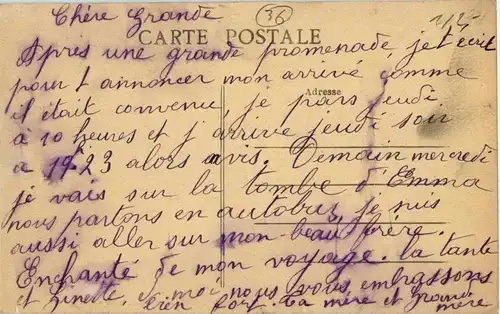 Chère Grande
36
CARTE POSTALE
Après une grande promenade, je t écrit
pour t annoncer mon arrivé comme
Adresse
il était convenu, je pars jeudi
à 10 heures et j arrive jeudi soir
a 19h23 alors avis. Demain mercredi
je vais sur la tombe d'Emma
nous partons en autobus, je suis
aussi aller sur mon beau frère.
Enchanté de mon voyage. la tante
et Ginette, et moi nous vous embrassons
bien fort. Ta mère et grand
mère